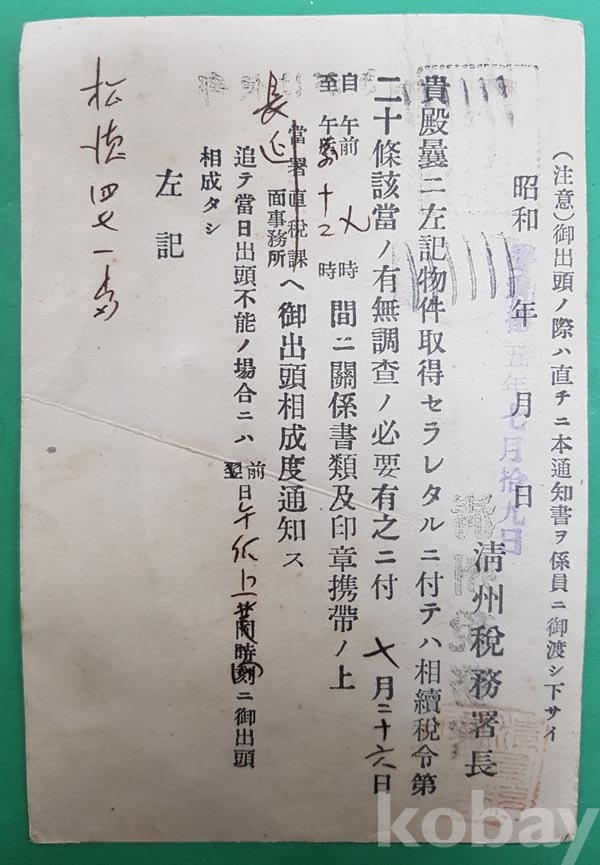 (注意)御出頭ノ際ハ直チニ本通知書ヲ係員ニ御渡シ下サイ
昭和 年 月 日
五年七月拾九日
淸州稅務署長
貴殿曩ニ左記物件取得セラレタルニ付テハ相續稅令第
二十條該當ノ有無調查ノ必要有之ニ付 七月二十六日
自午前 九時
至午 十二時
間ニ關係書類及印章携帶ノ上
當署直稅課
長延 面事務所
へ御出頭相成度通知ス
追テ當日出頭不能ノ場合ニハ 前 翌日 時刻ニ御出頭
相成タシ
左記
松 四七一
kobay